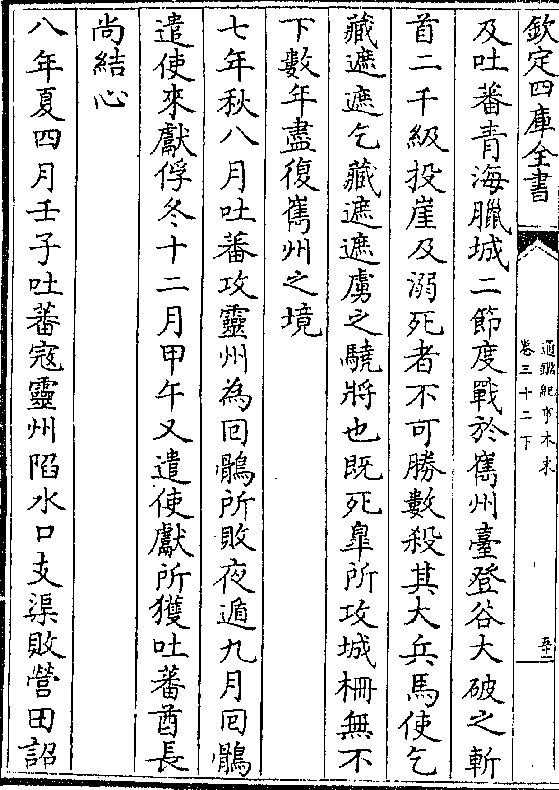 欽定四庫全書
通鑑紀事本末
卷三十二下
及吐蕃青海臘城二節度戰於嶲州臺登谷大破之斬
首二千級投崖及溺死者不可勝數殺其大兵馬使乞
藏遮遮乞藏遮遮虜之驍將也既死臯所攻城柵無不
下數年盡復嶲州之境
七年秋八月吐蕃攻靈州為回鶻所敗夜遁九月回鶻
遣使來獻俘冬十二月甲午又遣使獻所獲吐蕃酋長
尚結心
八年夏四月壬子吐蕃寇靈州陷水口支渠敗營田詔